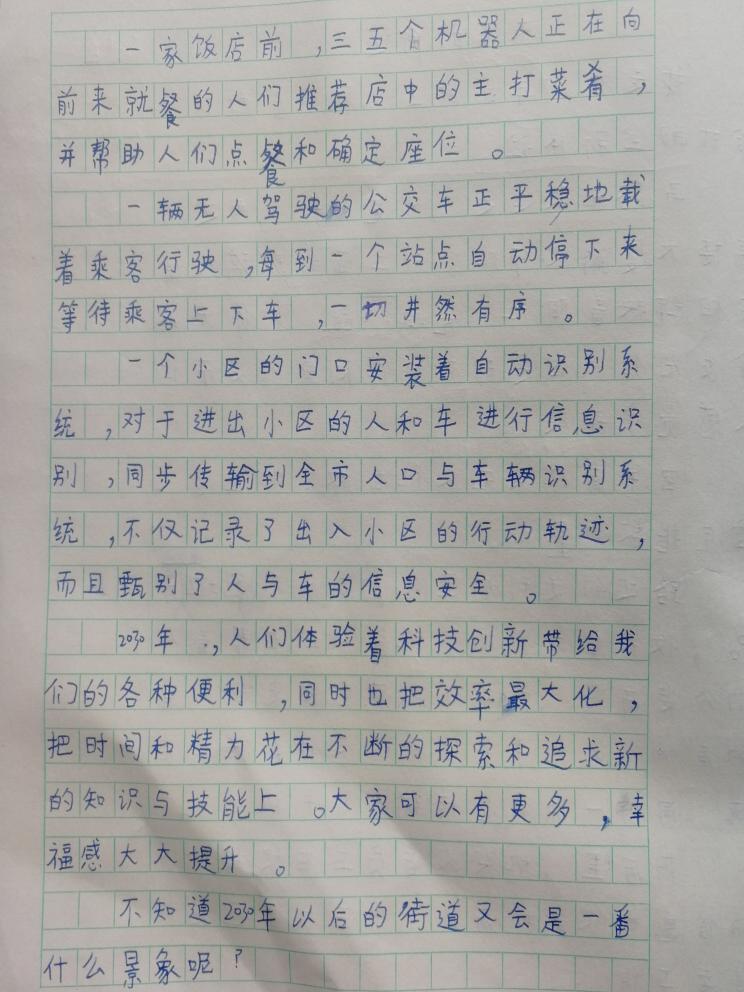 一家饭店前,三五个机器人正在向
前来就餐的人们推荐店中的主打菜肴,
并帮助人们点餐和确定座位。
一辆无人驾驶的公交车正平稳地载
着乘客行驶,每到一个站点自动停下来
等待乘客上下车,一切井然有序。
一个小区的门口安装着自动识别系
统,对于进出小区的人和车进行信息识
别,同步传输到全市人口与车辆识别系
统,不仅记录了出入小区的行动轨迹,
而且甄别了人与车的信息安全。
2030年,人们体验着科技创新带给我
们的各种便利,同时也把效率最大化,
把时间和精力花在不断的探索和追求新
的知识与技能上。大家可以有更多,幸
福感大大提升。
不知道2030年以后的街道又会是一番
什么景象呢?